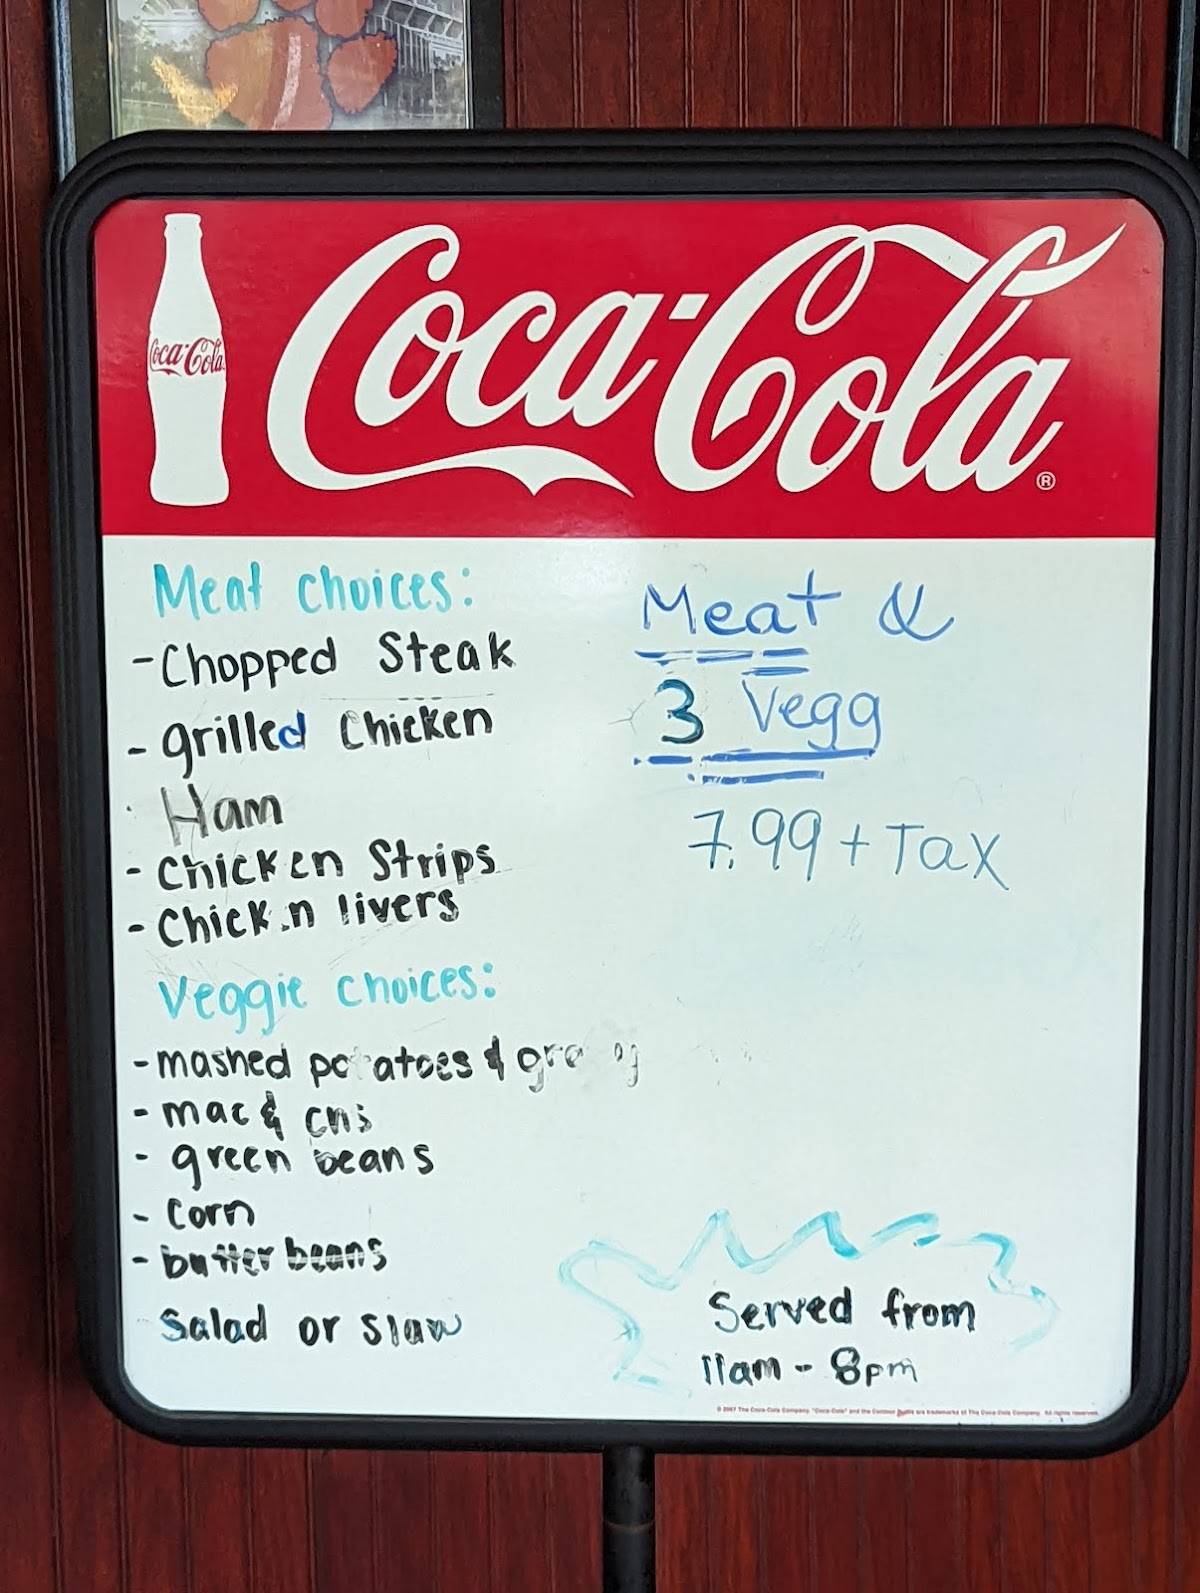 Coca-Cola
Coca-Cola ®
Meat choices:
- Chopped Steak
- grilled Chicken
Ham
- Chicken Strips
- Chick.n livers
Veggie choices:
- mashed potatoes & gravy
- mac & chs
- green beans
- Corn
- butter beans
Salad or slaw
Meat &
3 Vegg
7.99 + Tax
Served from
11am - 8pm
© 2007 The Coca-Cola Company. "Coca-Cola" and the Contour Bottle are trademarks of The Coca-Cola Company. All rights reserved.